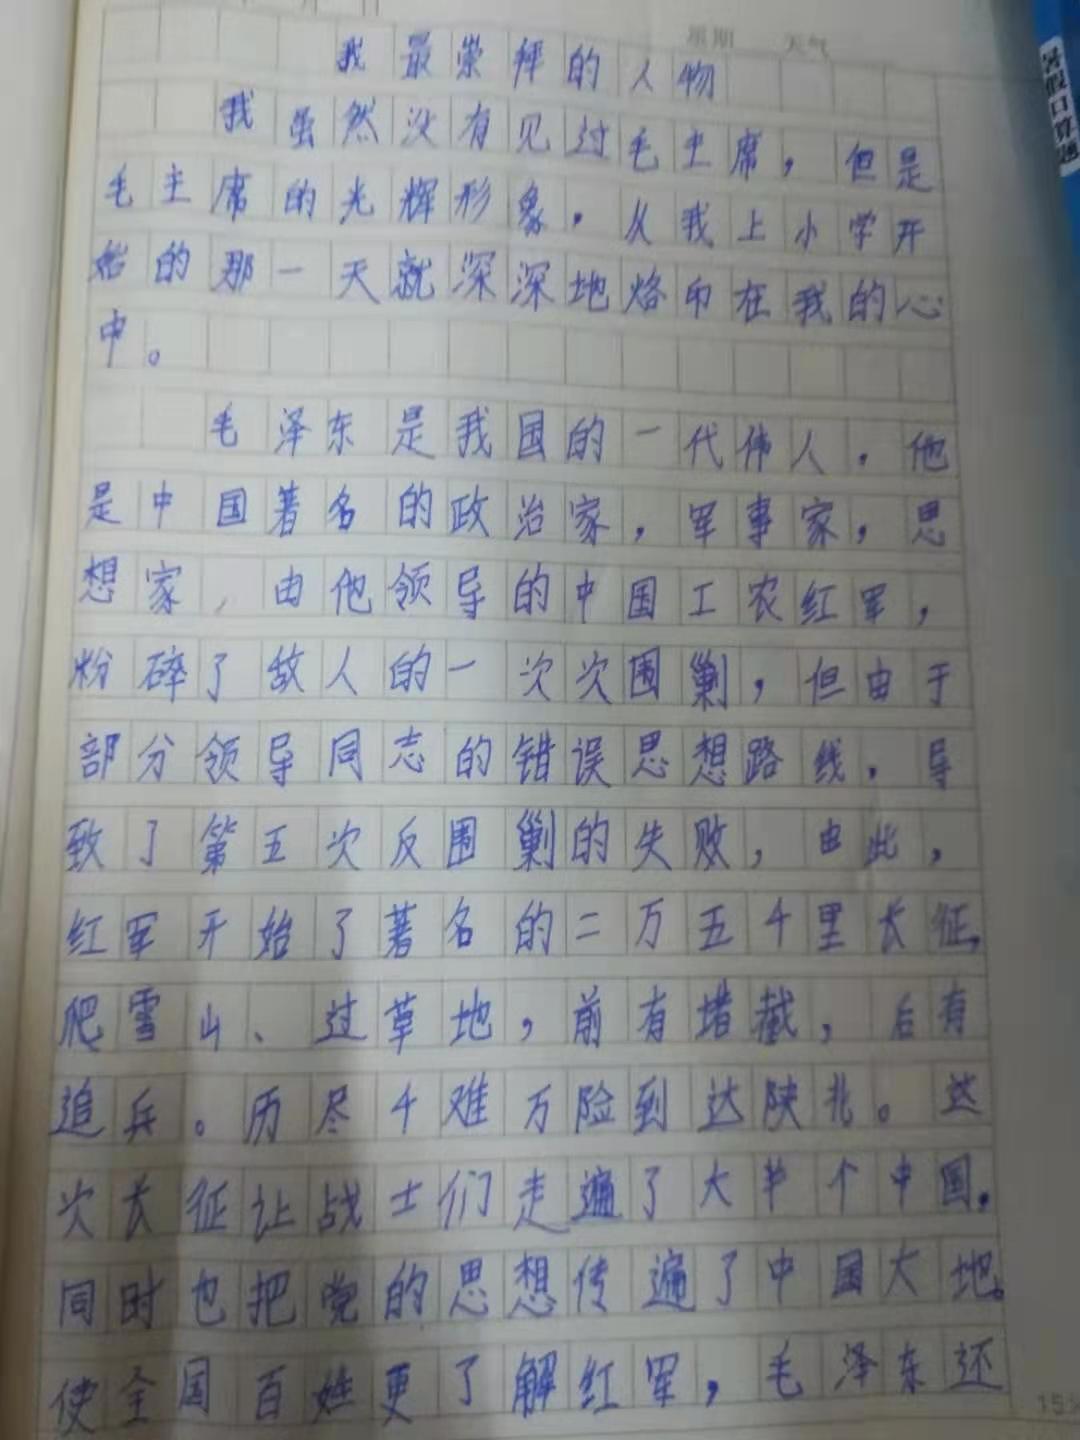 星期 天气
我最崇拜的人物
我虽然没有见过毛主席，但是
毛主席的光辉形象，从我上小学开
始的那一天就深深地烙印在我的心
中。
毛泽东是我国的一代伟人，他
是中国著名的政治家，军事家，思
想家，由他领导的中国工农红军，
粉碎了敌人的一次次围剿，但由于
部分领导同志的错误思想路线，导
致了第五次反围剿的失败，由此，
红军开始了著名的二万五千里长征，
爬雪山、过草地，前有堵截，后有
追兵。历尽千难万险到达陕北。这
次长征让战士们走遍了大半个中国，
同时也把党的思想传遍了中国大地。
使全国百姓更了解红军，毛泽东还
暑假口算题